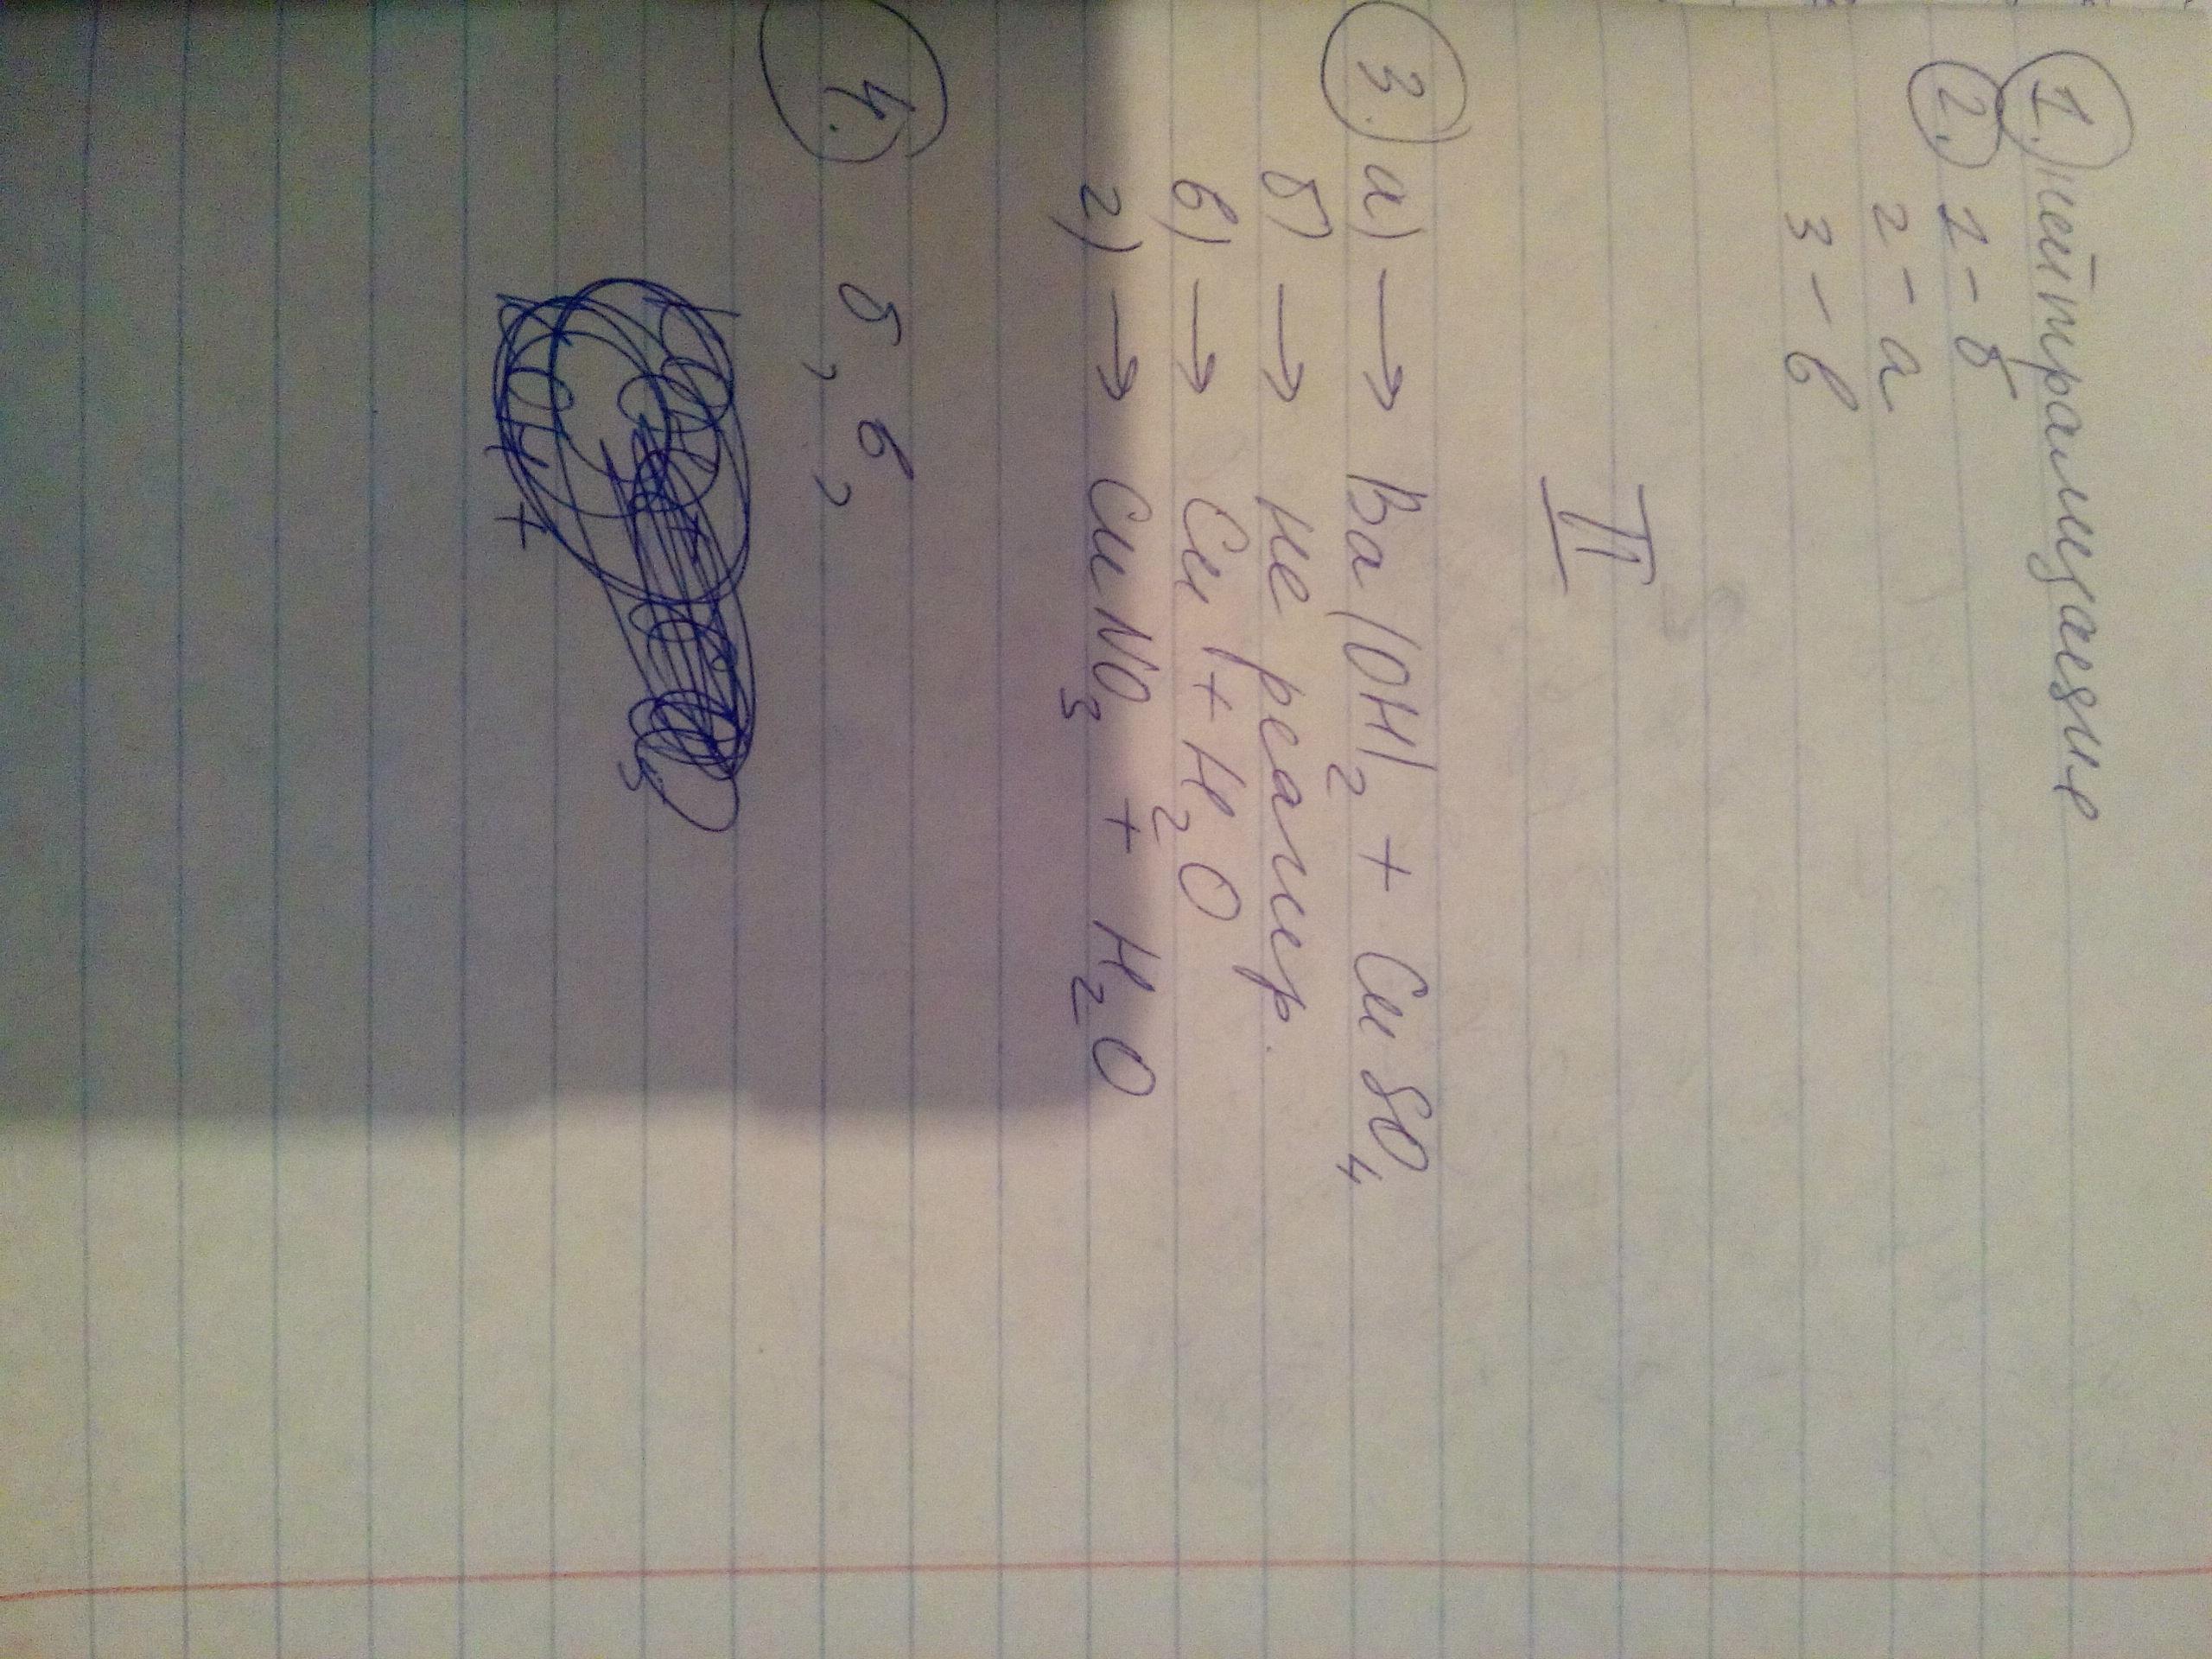 1.) нейтрализация
2.) 1 - б
2 - а
3 - в
II
3.) а) → Ba(OH)2 + CuSO4
б) → не реагир.
в) → Cu + H2O
г) → CuNO3 + H2O
4.) б, в,